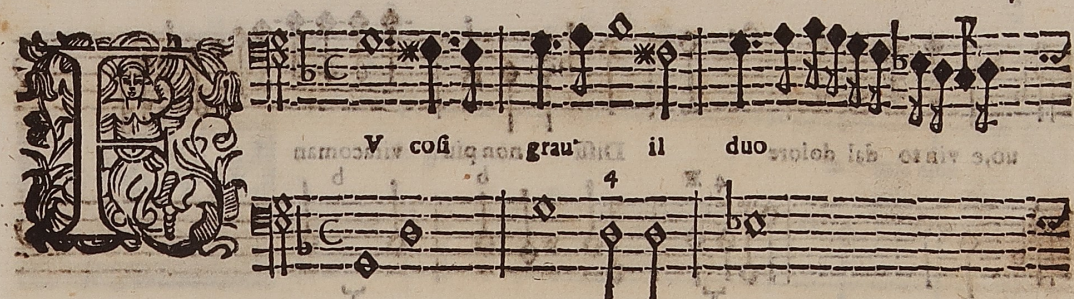 FV cosi grau' il duo
4